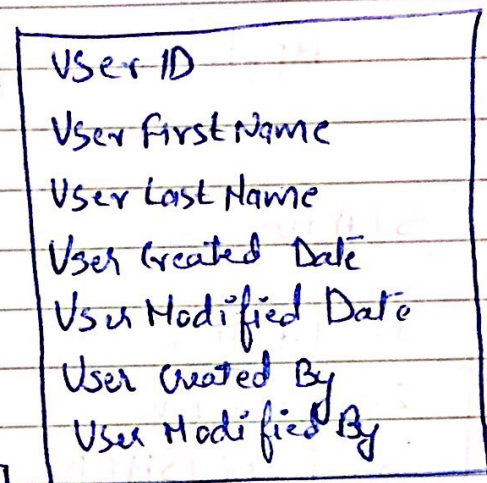 User ID
User First Name
User Last Name
User Created Date
User Modified Date
User Created By
User Modified By